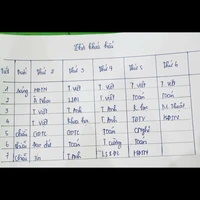 Thời khoá biểu
Tiết Buổi Thứ 2 Thứ 3 Thứ 4 Thứ 5 Thứ 6
1 Sáng HĐTN T. Việt T. Việt T. Việt T. Việt
2 Â Nhạc T. Việt Toán Toán
3 T. Việt T. Anh T. Anh K. học M. Thuật
4 T. Việt Khoa học T. Anh HĐTN
5 chiều GDTC GDTC Toán CNghệ
6 chiều Đạo đức Toán T. Việt Toán
7 chiều Tin T. Anh HĐTN